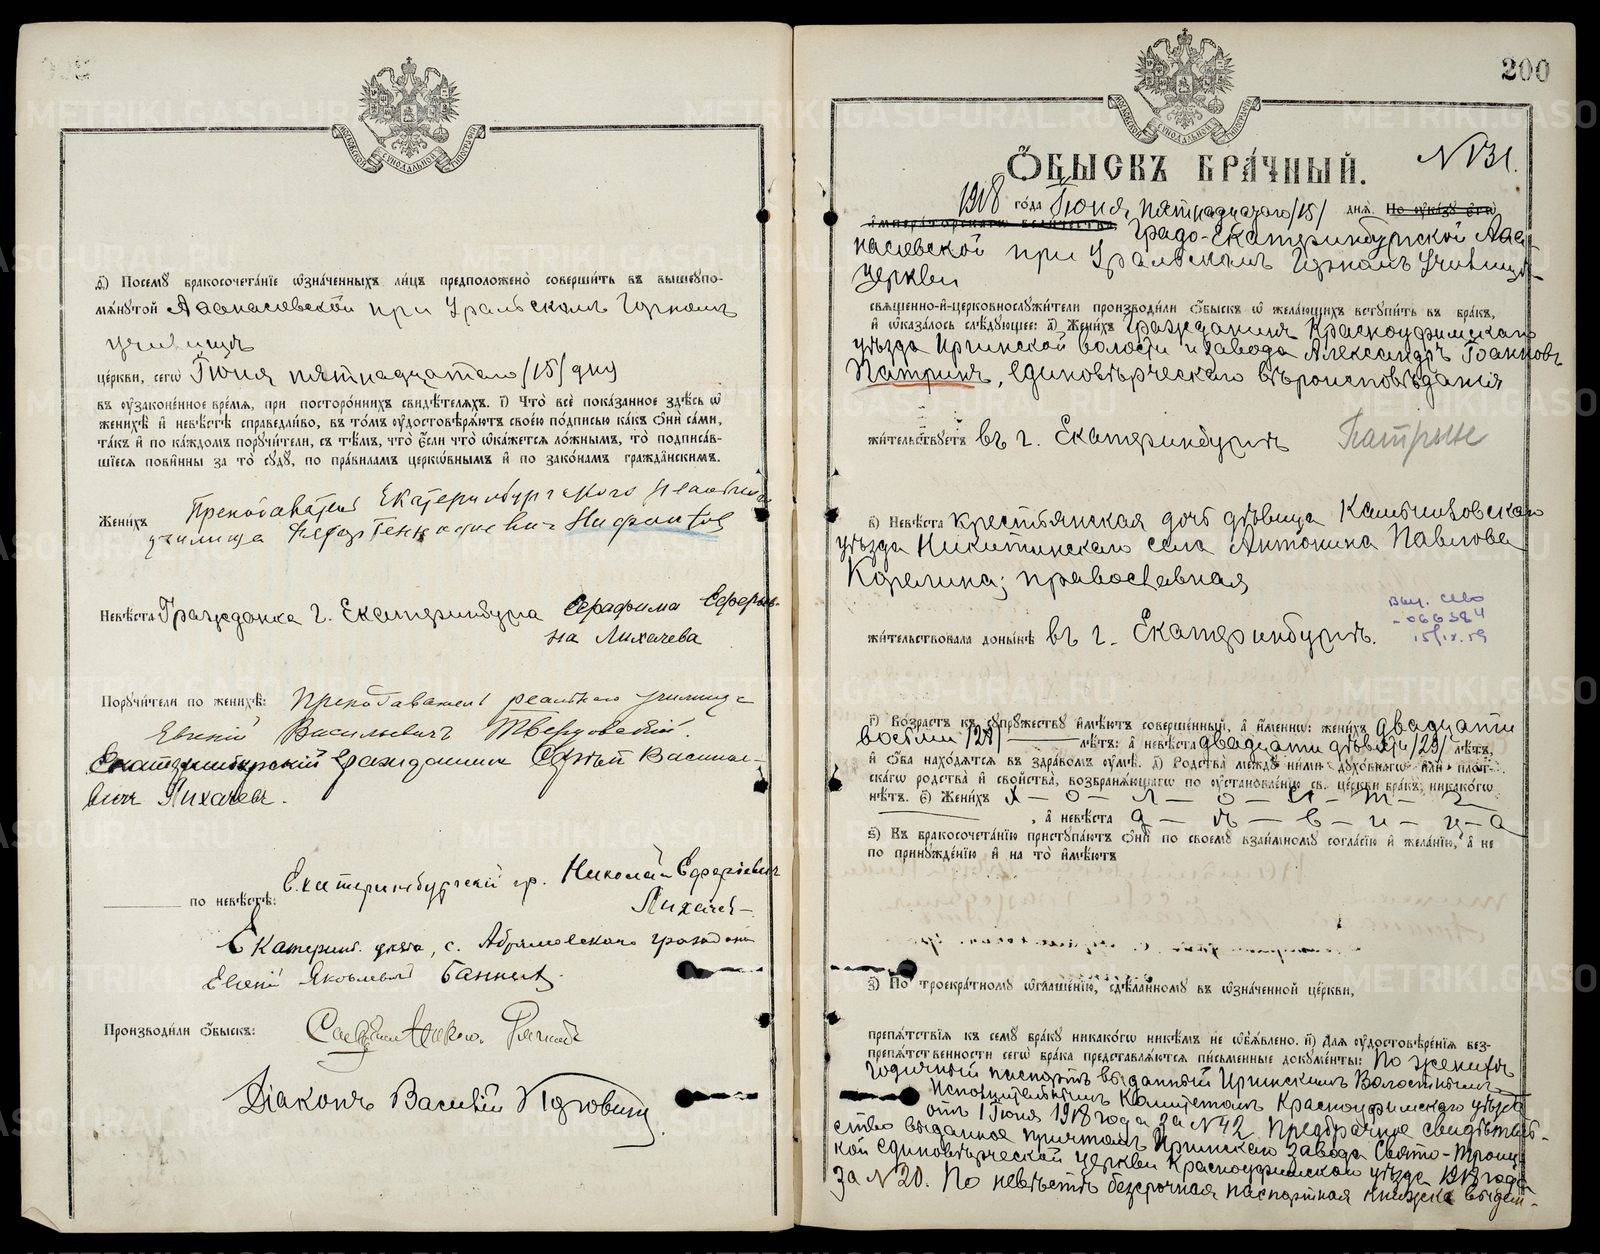 МОСКОВСКОЙ СѴНОДАЛЬНОЙ ТИПОГРАФІИ
ѳ҃) Посемꙋ бракосочета́нїе ѡ҆зна́ченныхъ ли́цъ предположено̀ соверши́ть въ вышеꙋпо-
мѧ́нꙋтой Аѳанасіевской при Уральскомъ Горномъ
училищѣ
це́ркви, сегѡ̀ Іюня пятнадцатаго /15/ дня
въ ᲂу҆зако́ненное вре́мѧ, при посторо́ннихъ свидѣ́телѧхъ. і҃) Что̀ всѐ пока́занное здѣ́сь ѡ҆
женихѣ̀ и҆ невѣ́стѣ справедли́во, въ то́мъ ᲂу҆достовѣрѧ́ютъ свое́ю по́дписью ка́къ ѻ҆нѝ са́ми,
та́къ и҆ по ка́ждомъ порꙋчи́тели, съ тѣ́мъ, что̀ є҆́сли что̀ ѡ҆ка́жетсѧ ло́жнымъ, то̀ подписа́в-
шїесѧ пови́нны за то̀ сꙋдꙋ̀, по пра́виламъ церко́внымъ и҆ по зако́намъ гражда́нскимъ.
Жени́хъ Преподаватель Екатеринбургского реального
училища Ѳедоръ Геннадіевич Нифонтов
Невѣ́ста Гражданка г. Екатеринбурга Серафима Ефремов-
на Лихачева
Порꙋчи́тели по женихѣ̀: Преподаватель реального училища
Евгеній Васильевич Твердовский.
Екатеринбургскій гражданин Сергѣй Василье-
вич Лихачевъ.
по невѣ́стѣ: Екатеринбургскій гр. Николай Ефремович
Лихачев
Екатеринб. уѣзда, с. Абрамовскаго гражданин
Евгеній Яковлевич Банных.
Производи́ли ѻ҆́быскъ:
Діаконъ Василій
200
МОСКОВСКОЙ СѴНОДАЛЬНОЙ ТИПОГРАФІИ
Ѻ҆́БЫСКЪ БРА́ЧНЫЙ. №131.
1918 го́да Іюня, пятнадцатаго /15/ днѧ̀. По ᲂу҆ка́зꙋ є҆гѡ̀
и҆мпера́торскагѡ вели́чества, Градо-Екатеринбургской Аѳа-
насіевской при Уральскомъ Горномъ Училищѣ
Церкви
свѧще́нно-и҆-церковнослꙋжи́тели производи́ли ѻ҆́быскъ ѡ҆ жела́ющихъ встꙋпи́ть въ бра́къ,
и҆ ѡ҆каза́лось слѣ́дꙋющее: а҃) Жени́хъ Гражданинъ Красноуфимскаго
уѣзда Иргинской волости и завода Александръ Іоанновъ
Патринъ, единовѣрческаго вѣроисповѣданія
жи́тельствꙋетъ въ г. Екатеринбургѣ Патрин
в҃) Невѣ́ста крестьянская дочь дѣвица Камышловскаго
уѣзда Никитинскаго села Антонина Павлова
Корелина; православная
жи́тельствовала доны́нѣ въ г. Екатеринбургѣ.
Выд. св-во
- 066384
15/IX.59
г҃) Во́зрастъ къ сꙋпрꙋ́жествꙋ и҆мѣ́ютъ соверше́нный, а҆ и҆́менно: жени́хъ двадцати
восьми /28/ лѣ́тъ: а҆ невѣ́ста двадцати девяти /29/ лѣ́тъ,
и҆ ѻ҆́ба нахо́дѧтсѧ въ здра́вомъ ᲂу҆мѣ̀. д҃) Родства̀ междꙋ̀ ни́ми дꙋхо́внагѡ и҆лѝ пло́т-
скагѡ родства̀ и҆ сво́йства, возбранѧ́ющагѡ по ᲂу҆становле́нїю св. це́ркви бра́къ, никако́гѡ
нѣ́тъ. є҃) Жени́хъ х-о-л-о-с-т-ъ
, а҆ невѣ́ста д-ѣ-в-и-ц-а
ѕ҃) Въ бракосочета́нїю пристꙋпа́ютъ ѻ҆нѝ по своемꙋ̀ взаи́мномꙋ согла́сїю и҆ жела́нїю, а҆ не
по принꙋжде́нїю и҆ на то̀ и҆мѣ́ютъ
з҃) По троекра́тномꙋ ѡ҆глаше́нїю, сдѣ́ланномꙋ въ ѡ҆зна́ченной це́ркви,
препѧ́тствїѧ къ семꙋ̀ бра́кꙋ никако́гѡ никѣ́мъ не ѡ҆б̾ѧ́влено. и҃) Длѧ ᲂу҆достовѣре́нїѧ без-
препѧ́тственности сегѡ̀ бра́ка представлѧ́ютсѧ пи́сьменные докꙋме́нты: По женихѣ
годичный паспортъ выданный Иргинскимъ Волостнымъ
Исполнительнымъ Комитетомъ Красноуфимскаго уѣзда
отъ 1 Іюня 1918 года за №42. Предбрачное свидѣтель-
ство выданное причтомъ Иргинскаго завода Свято-Троиц-
кой Единовѣрческой церкви Красноуфимскаго уѣзда 1918 года
за №20. По невѣстѣ безсрочная паспортная книжка выдан-